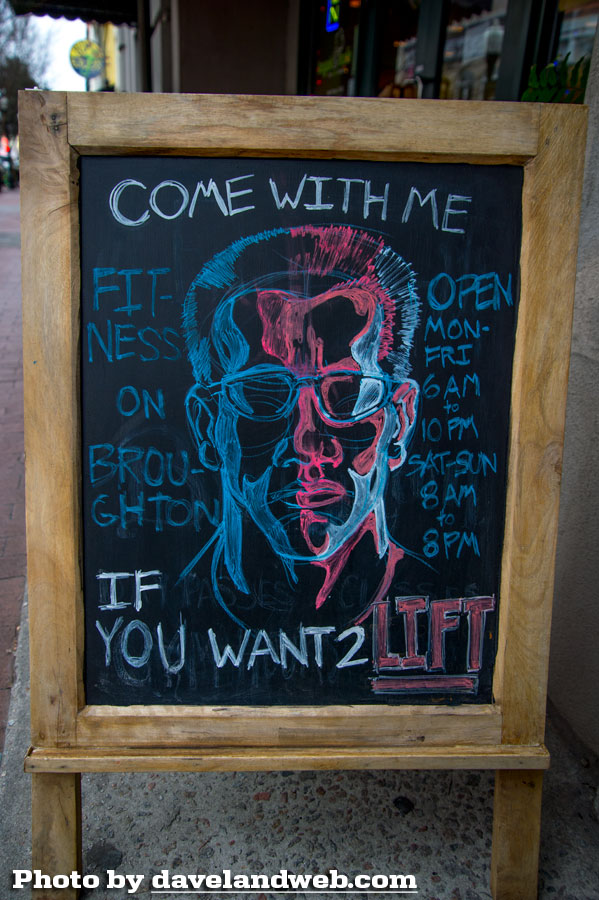 COME WITH ME
FIT-
NESS
ON
BROU-
GHTON
OPEN
MON-
FRI
6 AM
to
10 PM
SAT-SUN
8 AM
to
8 PM
IF
YOU WANT 2 LIFT
Photo by davelandweb.com